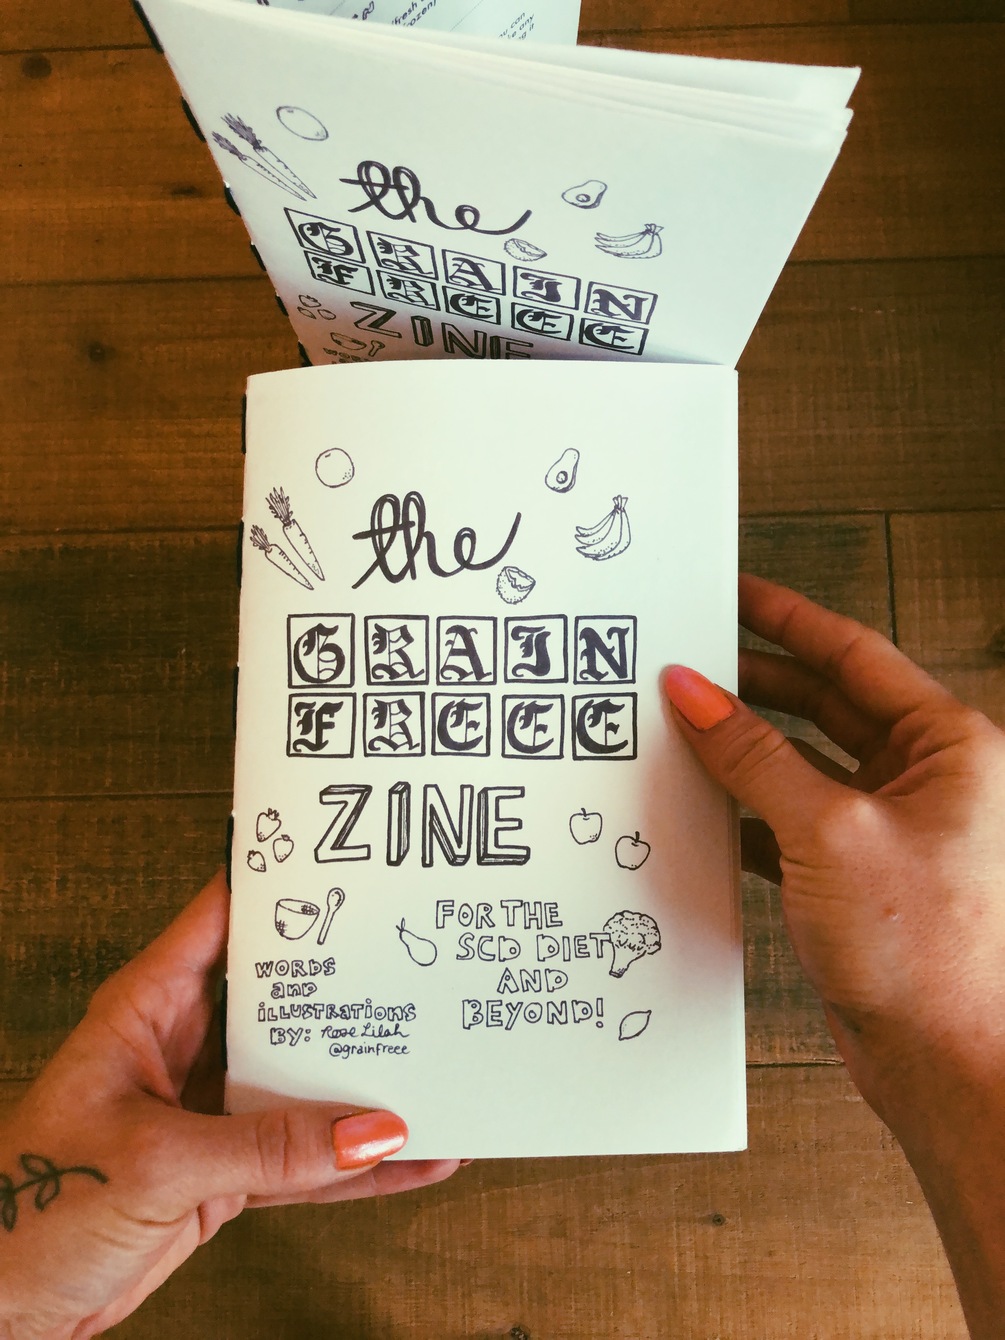 (fresh
ozen)
you can
any
the
GRAIN
FREEE
ZINE
the
GRAIN
FREEE
ZINE
FOR THE
SCD DIET
AND
BEYOND!
WORDS
and
iLLUSTRATIONS
BY: Rose Lilah
@grainfreee